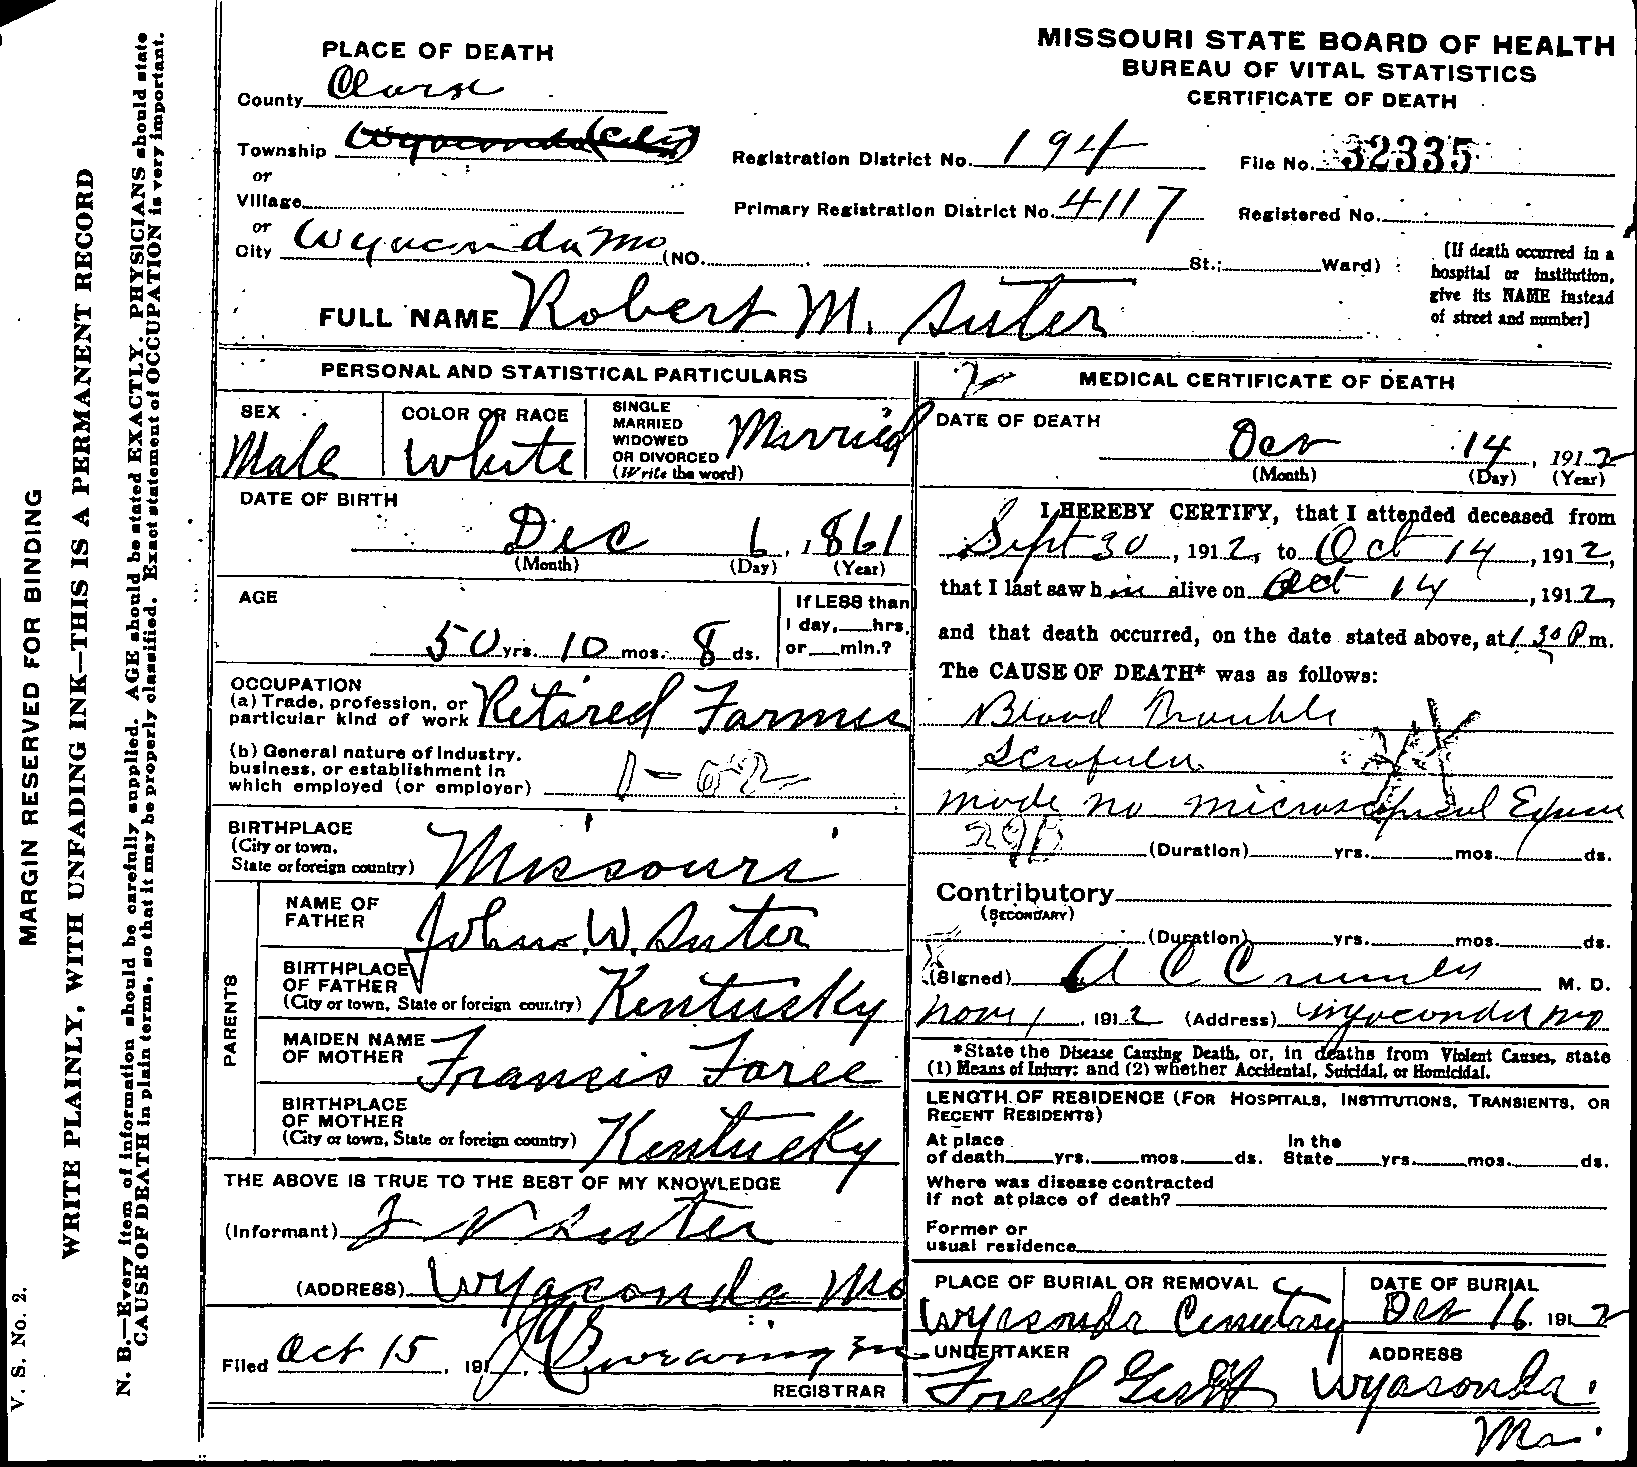 MISSOURI STATE BOARD OF HEALTH
BUREAU OF VITAL STATISTICS
CERTIFICATE OF DEATH
PLACE OF DEATH
County Clark
Township Wyaconda (City)
or
Village
or
City Wyaconda Mo (NO. St.; Ward)
Registration District No. 194 File No. 32335
Primary Registration District No. 4117 Registered No.
[If death occurred in a
hospital or institution,
give its NAME instead
of street and number]
FULL NAME Robert M. Suter
PERSONAL AND STATISTICAL PARTICULARS
SEX Male
COLOR OR RACE White
SINGLE
MARRIED
WIDOWED
OR DIVORCED
(Write the word) Married
DATE OF BIRTH
Dec 6, 1861
(Month) (Day) (Year)
AGE
50 yrs. 10 mos. 8 ds.
If LESS than
1 day, hrs.
or min.?
OCCUPATION
(a) Trade, profession, or
particular kind of work Retired Farmer
(b) General nature of industry,
business, or establishment in
which employed (or employer)
BIRTHPLACE
(City or town,
State or foreign country) Missouri
PARENTS
NAME OF
FATHER John W. Suter
BIRTHPLACE
OF FATHER
(City or town, State or foreign country) Kentucky
MAIDEN NAME
OF MOTHER Francis Foree
BIRTHPLACE
OF MOTHER
(City or town, State or foreign country) Kentucky
THE ABOVE IS TRUE TO THE BEST OF MY KNOWLEDGE
(Informant) Suter
(ADDRESS) Wyaconda Mo
Filed Oct 15, 191
REGISTRAR
MEDICAL CERTIFICATE OF DEATH
DATE OF DEATH
Oct 14, 1912
(Month) (Day) (Year)
I HEREBY CERTIFY, that I attended deceased from
Sept 30, 1912, to Oct 14, 1912,
that I last saw him alive on Oct 14, 1912,
and that death occurred, on the date stated above, at 1.30 P m.
The CAUSE OF DEATH* was as follows:
Blood Trouble
Scrofula
made no microscopical Exam
(Duration) yrs. mos. ds.
Contributory
(SECONDARY)
(Duration) yrs. mos. ds.
(Signed) A C Crumley M. D.
Nov 1, 1912 (Address) Wyaconda Mo
*State the Disease Causing Death, or, in deaths from Violent Causes, state
(1) Means of Injury; and (2) whether Accidental, Suicidal, or Homicidal.
LENGTH OF RESIDENCE (FOR HOSPITALS, INSTITUTIONS, TRANSIENTS, OR
RECENT RESIDENTS)
At place
of death yrs. mos. ds.
In the
State yrs. mos. ds.
Where was disease contracted
if not at place of death?
Former or
usual residence
PLACE OF BURIAL OR REMOVAL
Wyaconda Cemetery
DATE OF BURIAL
Oct 16, 1912
UNDERTAKER
Fred
ADDRESS
Wyaconda
Mo.
V. S. No. 2.
MARGIN RESERVED FOR BINDING
WRITE PLAINLY, WITH UNFADING INK—THIS IS A PERMANENT RECORD
N. B.—Every item of information should be carefully supplied. AGE should be stated EXACTLY. PHYSICIANS should state
CAUSE OF DEATH in plain terms, so that it may be properly classified. Exact statement of OCCUPATION is very important.